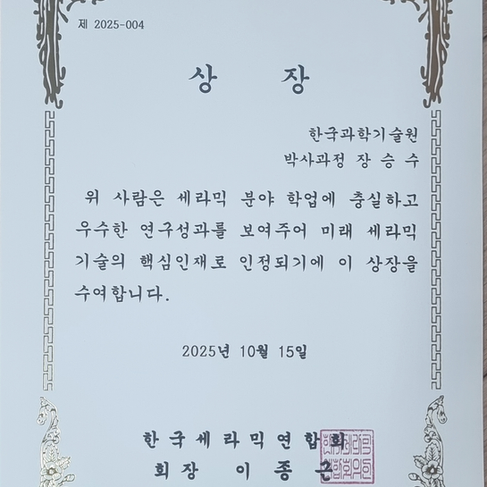 제 2025-004
상 장
한국과학기술원
박사과정 장 승 수
위 사람은 세라믹 분야 학업에 충실하고
우수한 연구성과를 보여주어 미래 세라믹
기술의 핵심인재로 인정되기에 이 상장을
수여합니다.
2025년 10월 15일
한국세라믹연합회
회장 이종근